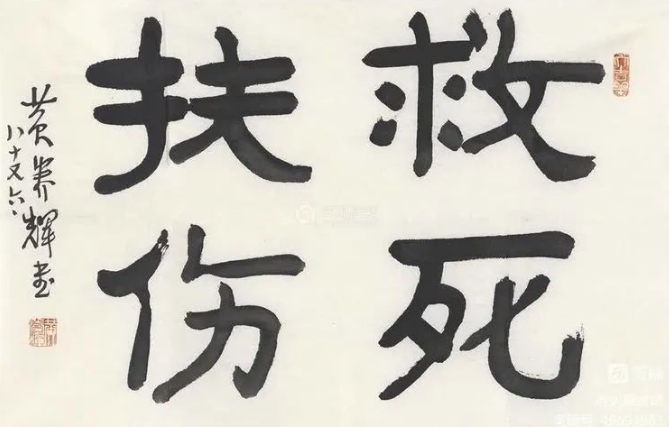 救死
扶伤
黄养辉书
八十又六